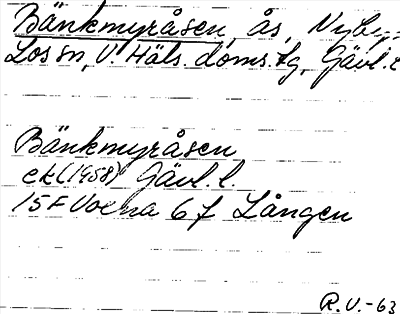 Bänkmyråsen, ås, Nyby,-
Los sn, V. Häls. doms.tg, Gävl. l
Bänkmyråsen
ek (1958) Gävl. l.
15F Voxna 6f Lången
R.V.-63